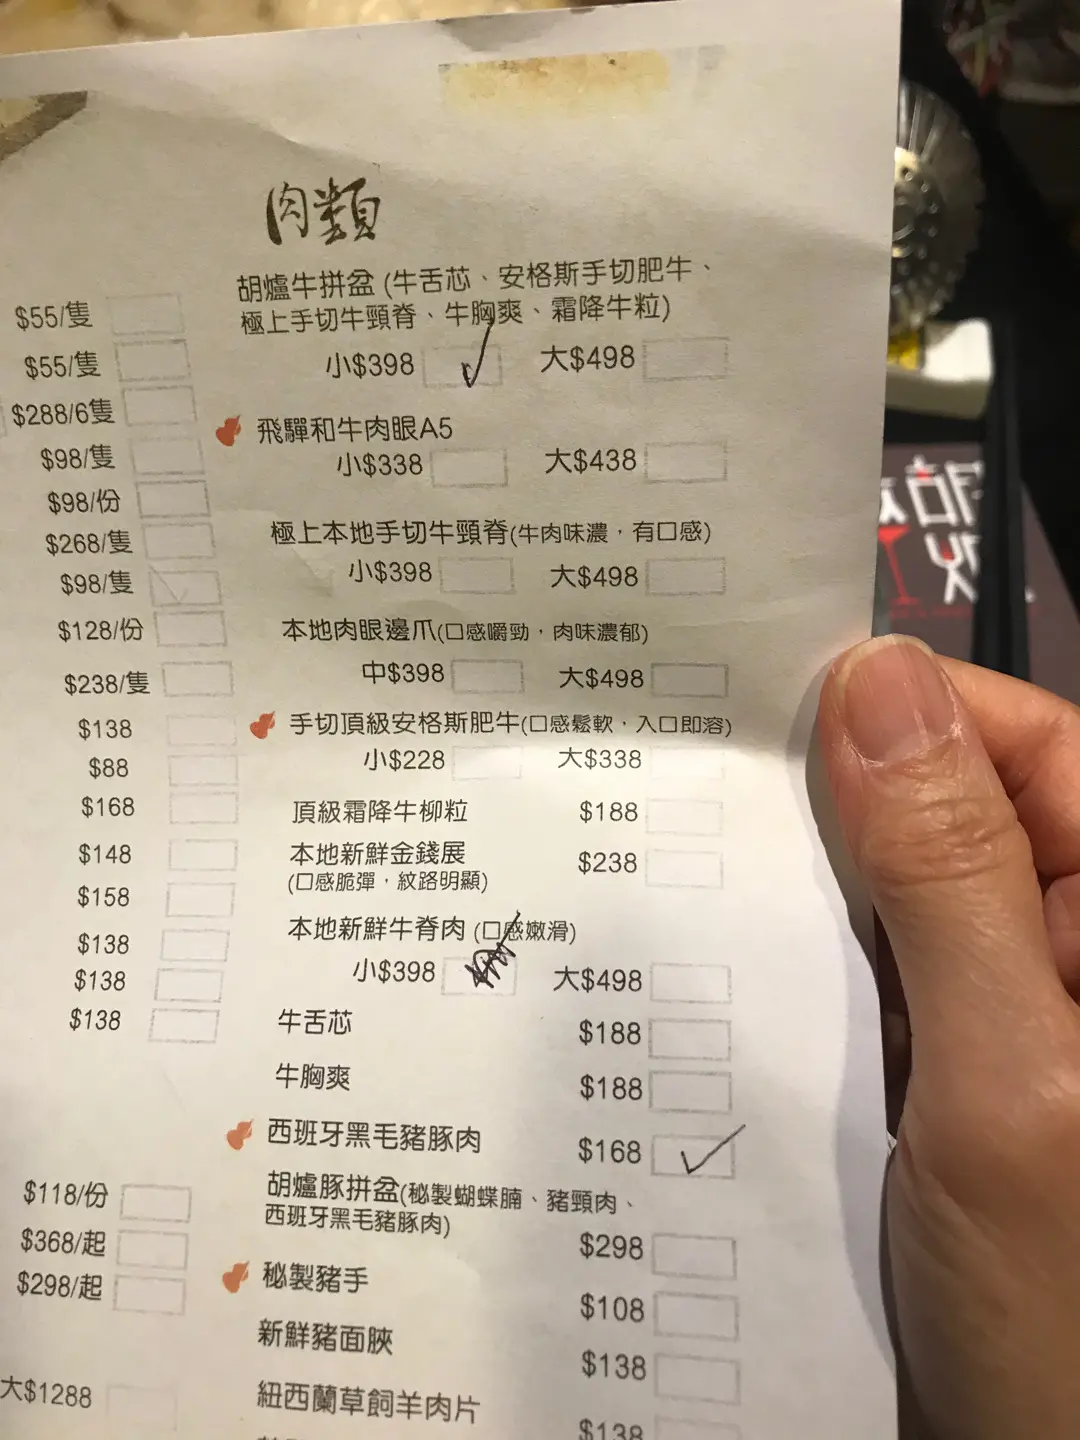 肉類
胡爐牛拼盆 (牛舌芯、安格斯手切肥牛、
極上手切牛頸脊、牛胸爽、霜降牛粒)
小$398 大$498
飛驒和牛肉眼A5
小$338 大$438
極上本地手切牛頸脊(牛肉味濃，有口感)
小$398 大$498
本地肉眼邊爪(口感嚼勁，肉味濃郁)
中$398 大$498
手切頂級安格斯肥牛(口感鬆軟，入口即溶)
小$228 大$338
頂級霜降牛柳粒 $188
本地新鮮金錢展 $238
(口感脆彈，紋路明顯)
本地新鮮牛脊肉 (口感嫩滑)
小$398 大$498
牛舌芯 $188
牛胸爽 $188
西班牙黑毛豬豚肉 $168
胡爐豚拼盆(秘製蝴蝶腩、豬頸肉、
西班牙黑毛豬豚肉)
$298
秘製豬手 $108
新鮮豬面脥 $138
紐西蘭草飼羊肉片 $138
$55/隻
$55/隻
$288/6隻
$98/隻
$98/份
$268/隻
$98/隻
$128/份
$238/隻
$138
$88
$168
$148
$158
$138
$138
$138
$118/份
$368/起
$298/起
大$1288